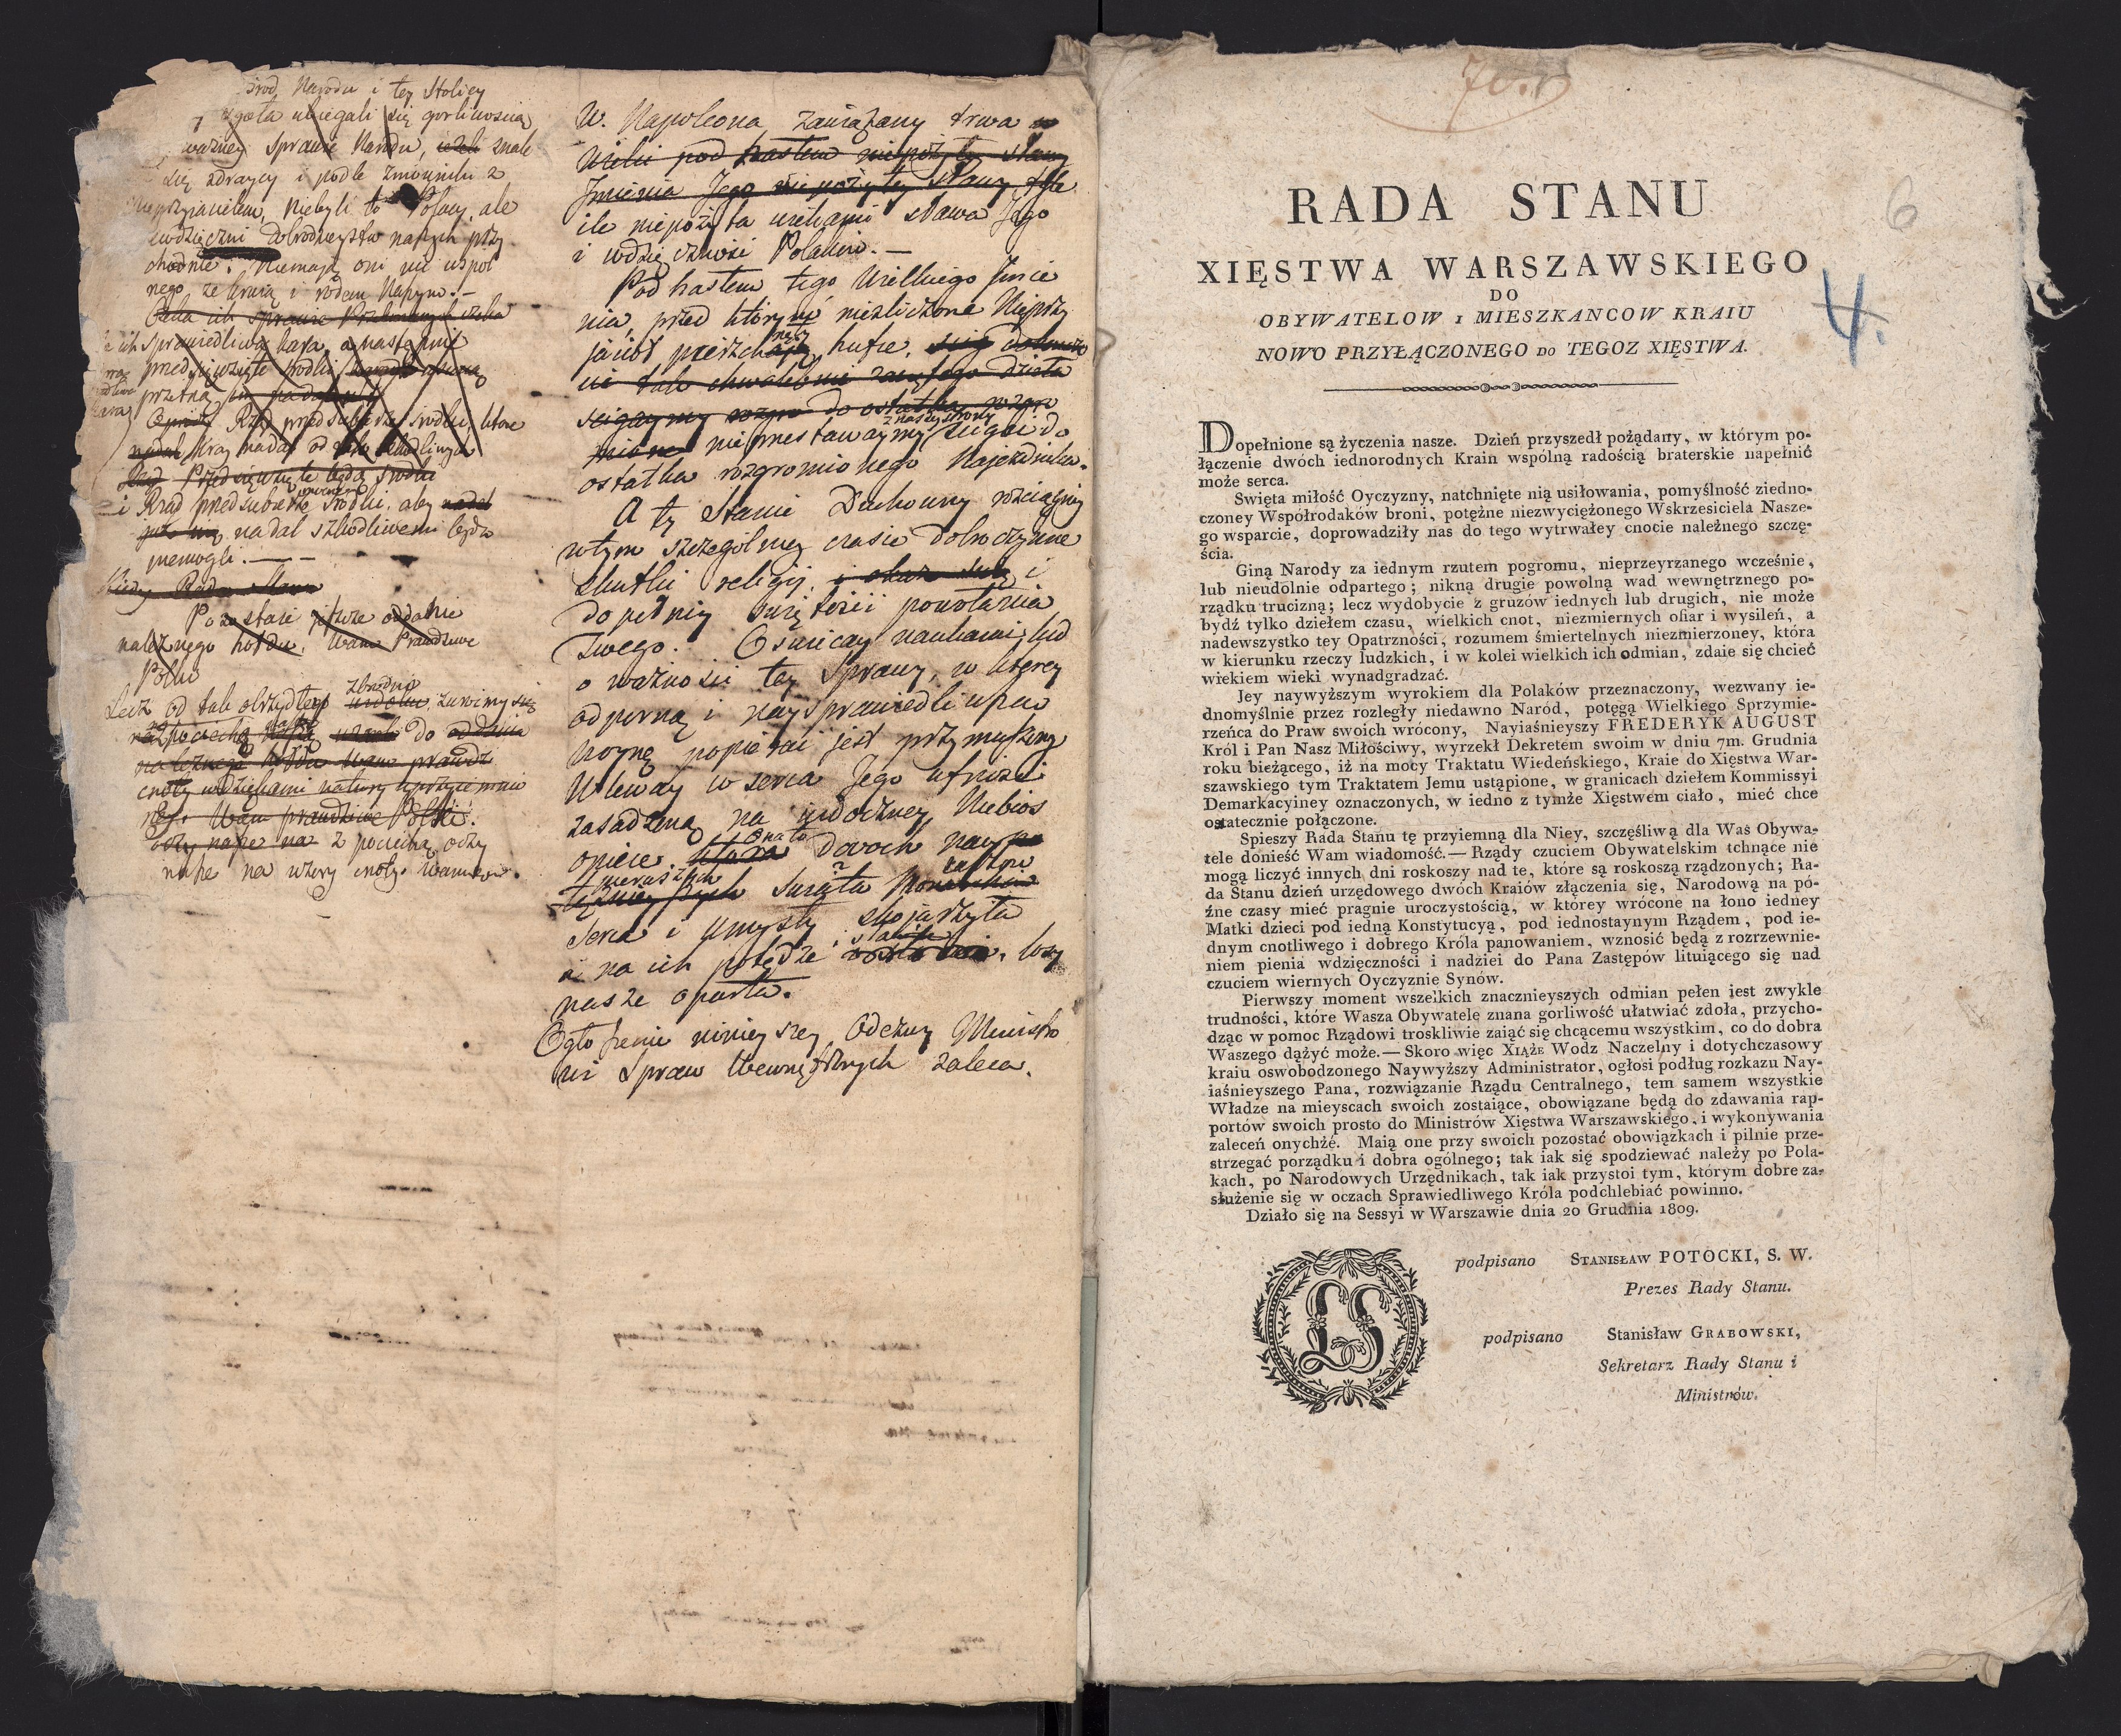 środ Narodu i tey Stolicy
ubiegali się gorliwością
ważney Sprawie Narodu, ieżeli znale
się zdraycy i podle zmownicy z
nieprzyiacielem, niebyli to Polacy, ale
niewdzięczni dobrodzieystw naszych przy
chodnie. Niemaią oni nic wspol
nego ze krwią i rodem Naszym. —
sprawiedliwa kara, a nastąpnie
przedsięwzięte środki
przetną
Rząd przedsiębierze środki, ktore
Kray nadal od szkodliwych
Przedsięwzięte będą środki
i Rząd przedsiębierze środki, aby nadal
nadal szkodliwemi będz
niemogli. —
Kiedy Rada Stanu
Pozostaie jeszcze oddanie
należnego hołdu, Wam Prawdziwe
Polki
Lecz od tak obrzydłego zbrodni widoku zwróćmy się
do oddania
należnego hołdu Wam prawdzi
cnoty wdziękami natury uprzyiemnio
ney. Wam prawdziwe Polki.
oczy nasze na z pociechą oczy
nasze na wzory cnoty.
W. Napoleona, zawiązany trwa
wieki pod hasłem niepożytey sławy
Imienia Jego niepożytey sławy tyle
ile niepożyta wiekami sława Jego
i wdzięczność Polaków. —
Pod hasłem tego Wielkiego Imie
nia, przed którym niezliczone Nieprzy
jaciół pierzchaią hufce,
tak chwalebnie zaczętego dzieła
ścigaymy do ostatka rozgro
mione nieprzestawaymy z naszey strony ścigać do
ostatka rozgromionego Najezdnika.
A ty Stanie Duchowny rozciągniy
wtym szczegolney czasie dobroczynne
skutki religij, i
dopełniy świętości powołania
Twego. Oświecay naukami lud
o ważności tey Sprawy, w którey
odporną i naysprawiedliwszą
woynę popierać jest przymuszony
Wleway w serca Jego ufność
zasadzoną na widoczney Niebios
opiece, która Ona to dwoch nay
pierwszych Świata Monarchów
serca i umysły skojarzyła
i na ich potędze i losy
nasze oparła.
Ogłoszenie ninieyszey Odezwy Ministro
wi Spraw Wewnętrznych zaleca.
70.
6
4.
RADA STANU
XIĘSTWA WARSZAWSKIEGO
DO
OBYWATELOW I MIESZKANCOW KRAIU
NOWO PRZYŁĄCZONEGO DO TEGOZ XIĘSTWA.
Dopełnione są życzenia nasze. Dzień przyszedł pożądany, w którym po-
łączenie dwóch iednorodnych Krain wspólną radością braterskie napełnić
może serca.
Swięta miłość Oyczyzny, natchnięte nią usiłowania, pomyślność ziedno-
czoney Współrodaków broni, potężne niezwyciężonego Wskrzesiciela Nasze-
go wsparcie, doprowadziły nas do tego wytrwałey cnocie należnego szczę-
ścia.
Giną Narody za iednym rzutem pogromu, nieprzeyrzanego wcześnie,
lub nieudolnie odpartego; nikną drugie powolną wad wewnętrznego po-
rządku trucizną; lecz wydobycie z gruzów iednych lub drugich, nie może
bydź tylko dziełem czasu, wielkich cnot, niezmiernych ofiar i wysileń, a
nadewszystko tey Opatrzności, rozumem śmiertelnych niezmierzoney, która
w kierunku rzeczy ludzkich, i w kolei wielkich ich odmian, zdaie się chcieć
wiekiem wieki wynadgradzać.
Jey naywyższym wyrokiem dla Polaków przeznaczony, wezwany ie-
dnomyślnie przez rozległy niedawno Naród, potęgą Wielkiego Sprzymie-
rzeńca do Praw swoich wrócony, Nayiaśnieyszy FREDERYK AUGUST
Król i Pan Nasz Miłościwy, wyrzekł Dekretem swoim w dniu 7m. Grudnia
roku bieżącego, iż na mocy Traktatu Wiedeńskiego, Kraie do Xięstwa War-
szawskiego tym Traktatem Jemu ustąpione, w granicach dziełem Kommissyi
Demarkacyiney oznaczonych, w iedno z tymże Xięstwem ciało, mieć chce
ostatecznie połączone.
Spieszy Rada Stanu tę przyiemną dla Niey, szczęśliwą dla Was Obywa-
tele donieść Wam wiadomość.— Rządy czuciem Obywatelskim tchnące nie
mogą liczyć innych dni roskoszy nad te, które są roskoszą rządzonych; Ra-
da Stanu dzień urzędowego dwóch Kraiów złączenia się, Narodową na pó-
źne czasy mieć pragnie uroczystością, w którey wrócone na łono iedney
Matki dzieci pod iedną Konstytucyą, pod iednostaynym Rządem, pod ie-
dnym cnotliwego i dobrego Króla panowaniem, wznosić będą z rozrzewnie-
niem pienia wdzięczności i nadziei do Pana Zastępów lituiącego się nad
czuciem wiernych Oyczyznie Synów.
Pierwszy moment wszelkich znacznieyszych odmian pełen iest zwykle
trudności, które Wasza Obywatele znana gorliwość ułatwiać zdoła, przycho-
dząc w pomoc Rządowi troskliwie zaiąć się chcącemu wszystkim, co do dobra
Waszego dążyć może.— Skoro więc XIĄŻE Wodz Naczelny i dotychczasowy
kraiu oswobodzonego Naywyższy Administrator, ogłosi podług rozkazu Nay-
iaśnieyszego Pana, rozwiązanie Rządu Centralnego, tem samem wszystkie
Władze na mieyscach swoich zostaiące, obowiązane będą do zdawania rap-
portów swoich prosto do Ministrów Xięstwa Warszawskiego, i wykonywania
zaleceń onychże. Maią one przy swoich pozostać obowiązkach i pilnie prze-
strzegać porządku i dobra ogólnego; tak iak się spodziewać należy po Pola-
kach, po Narodowych Urzędnikach, tak iak przystoi tym, którym dobre za-
służenie się w oczach Sprawiedliwego Króla podchlebiać powinno.
Działo się na Sessyi w Warszawie dnia 20 Grudnia 1809.
podpisano STANISŁAW POTOCKI, S. W.
Prezes Rady Stanu.
LS
podpisano Stanisław GRABOWSKI,
Sekretarz Rady Stanu i
Ministrów.